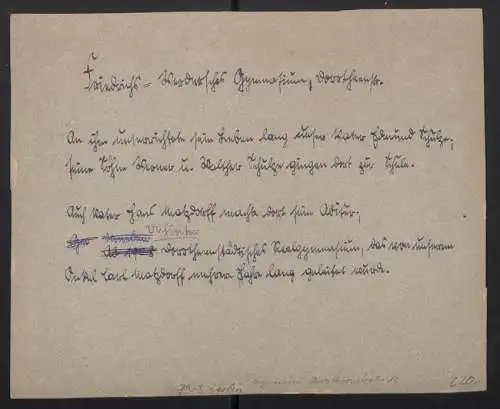 Friedrichs-Werdersches Gymnasium, Dorotheenstr.
An ihm unterrichtete sein Leben lang unser Vater Edmund Schulze;
seine Söhne Werner u. Walther Schulze gingen dort zur Schule.
Auch Vater Hans Matzdorff machte dort sein Abitur,
Dahinter
Dorotheenstädtisches Realgymnasium, das von unserem
Onkel Carl Matzdorff mehrere Jahre lang geleitet wurde.
Berlin